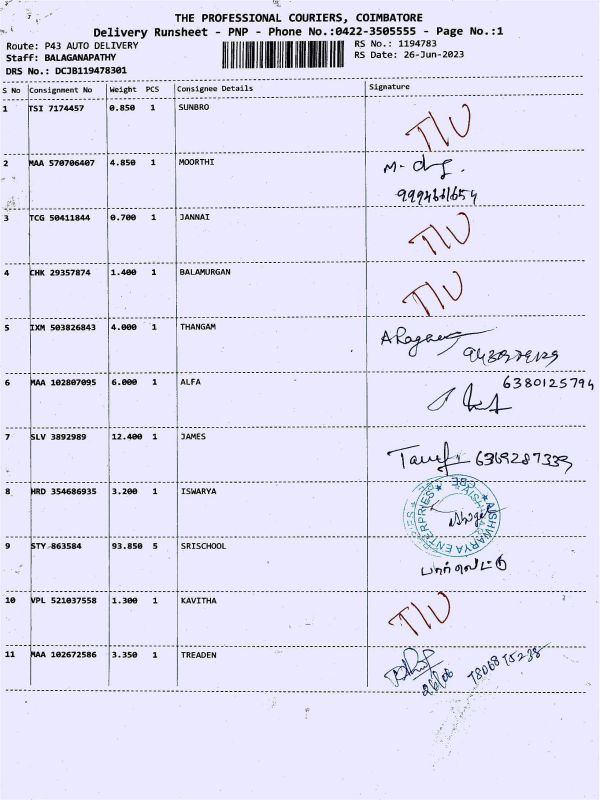 THE PROFESSIONAL COURIERS, COIMBATORE
Delivery Runsheet - PNP - Phone No.:0422-3505555 - Page No.:1
Route: P43 AUTO DELIVERY RS No.: 1194783
Staff: BALAGANAPATHY RS Date: 26-Jun-2023
DRS No.: DCJB119478301
S No Consignment No Weight PCS Consignee Details Signature
1 TSI 7174457 0.850 1 SUNBRO T/U
2 MAA 570706407 4.850 1 MOORTHI
3 TCG 50411844 0.700 1 JANNAI T/U
4 CHK 29357874 1.400 1 BALAMURGAN T/U
5 IXM 503826843 4.000 1 THANGAM
6380125794
6 MAA 102807095 6.000 1 ALFA
7 SLV 3892989 12.400 1 JAMES 6369287339
8 HRD 354686935 3.200 1 ISWARYA
AISHWARYA ENTERPRISES
9 STY 863584 93.850 5 SRISCHOOL
10 VPL 521037558 1.300 1 KAVITHA T/U
11 MAA 102672586 3.350 1 TREADEN
26/06